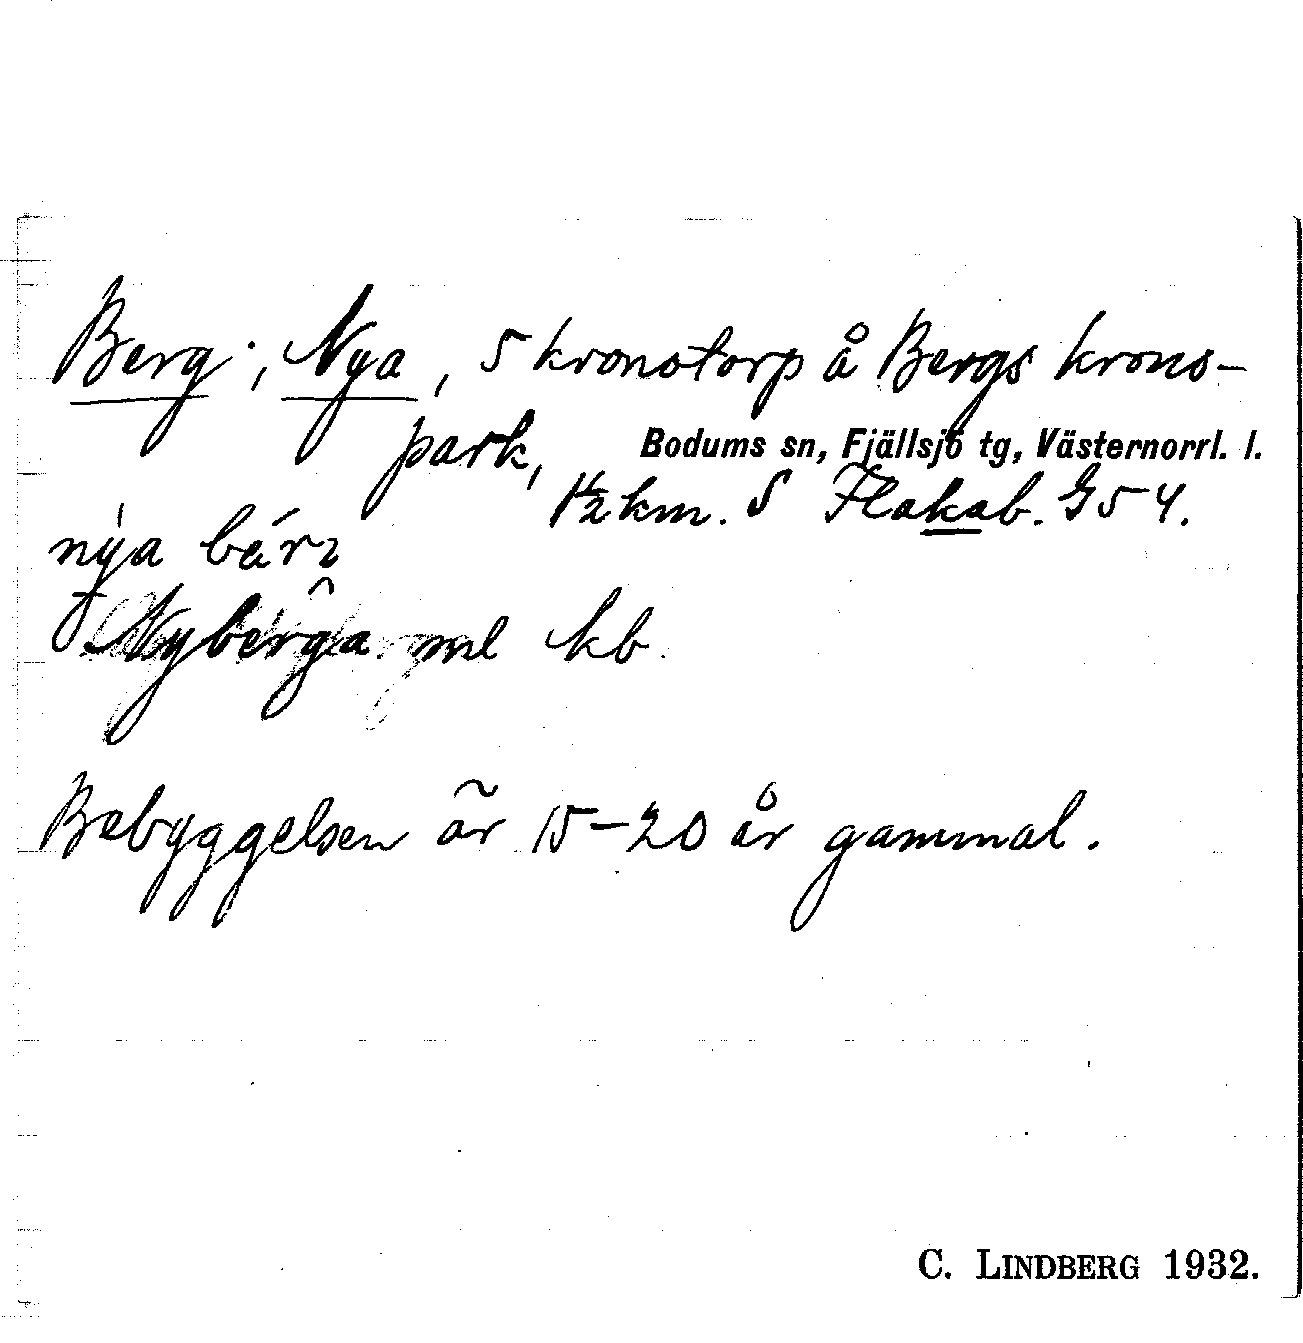 Berg, Nya, 5 kronotorp å Bergs krono-
park, Bodums sn, Fjällsjö tg, Västernorrl. l.
1½ km. S Flakab. G54.
nya bérʒ
Nybérga ml kb.
Bebyggelsen är 15-20 år gammal.
C. LINDBERG 1932.